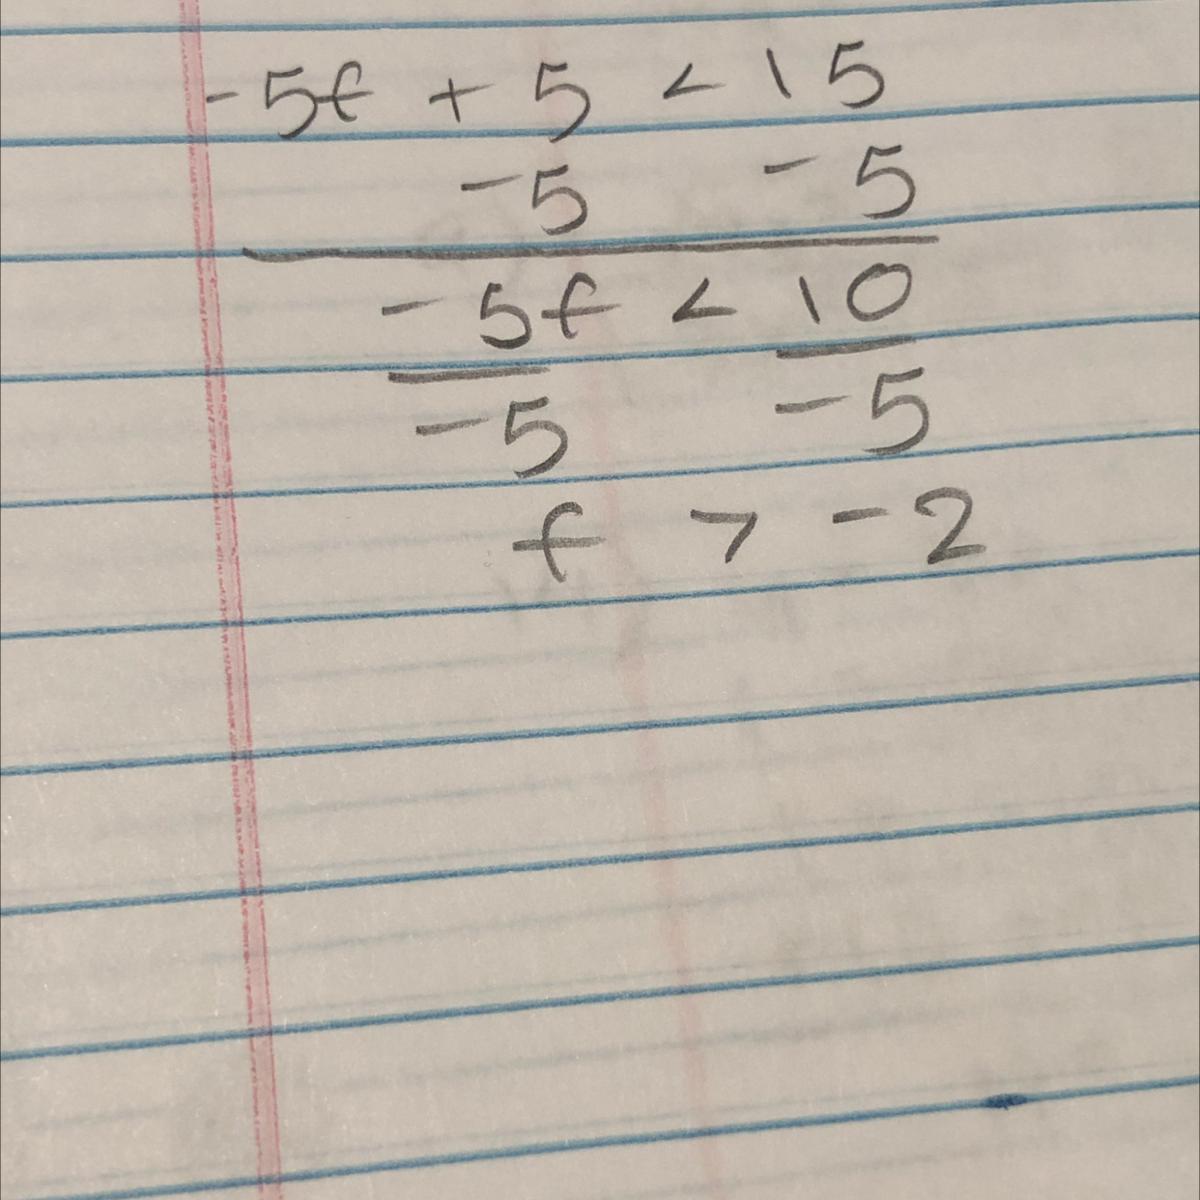 -5f + 5 < 15
-5 -5
-5f < 10
-5 -5
f > -2